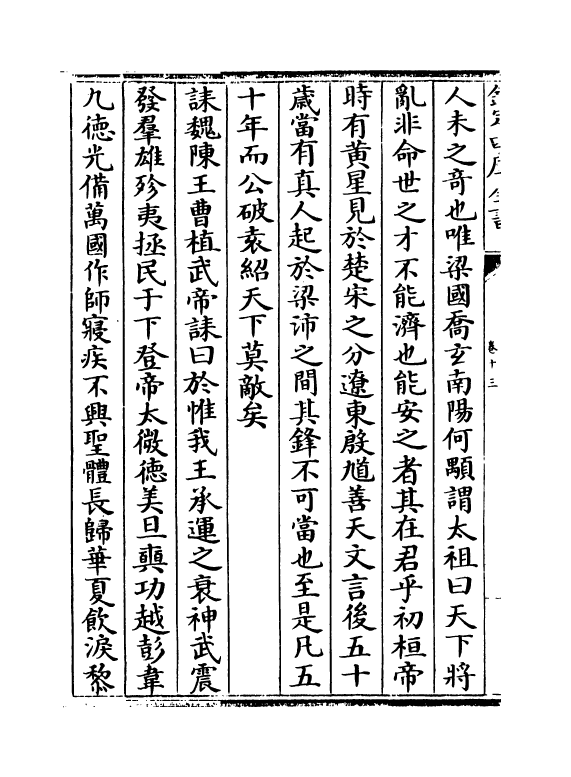 欽定四庫全書
卷十三
人未之奇也唯梁國喬玄南陽何顒謂太祖曰天下將
亂非命世之才不能濟也能安之者其在君乎初桓帝
時有黃星見於楚宋之分遼東殷馗善天文言後五十
歲當有真人起於梁沛之間其鋒不可當也至是凡五
十年而公破袁紹天下莫敵矣
誄魏陳王曹植武帝誄曰於惟我王承運之衰神武震
發羣雄殄夷拯民于下登帝太微德美旦奭功越彭韋
九德光備萬國作師寢疾不興聖體長歸華夏飲淚黎